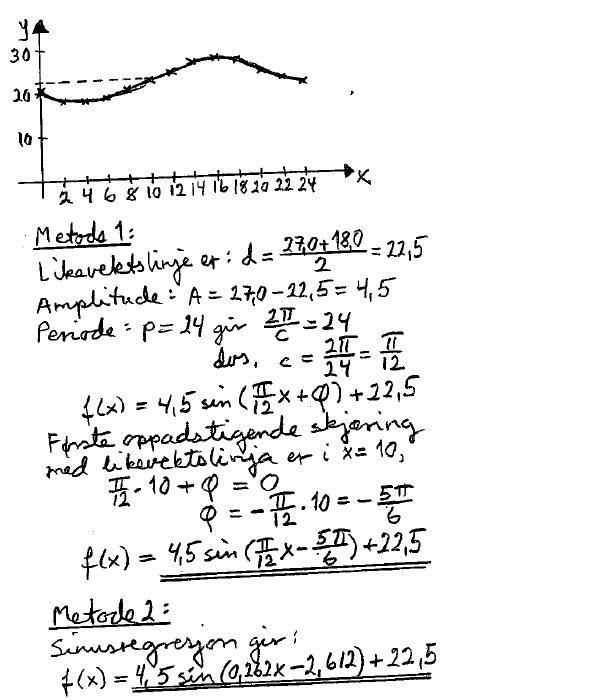 y
30
20
10
2 4 6 8 10 12 14 16 18 20 22 24 x
Metode 1:
Likevektslinje er: d = (27,0+18,0)/2 = 22,5
Amplitude: A = 27,0 − 22,5 = 4,5
Periode: p = 24 gir 2π/c = 24
dvs. c = 2π/24 = π/12
f(x) = 4,5 sin (π/12 x + φ) + 22,5
Første oppadstigende skjæring
med likevektslinja er i x = 10,
π/12 · 10 + φ = 0
φ = −π/12 · 10 = −5π/6
f(x) = 4,5 sin (π/12 x − 5π/6) + 22,5
Metode 2:
Sinusregresjon gir:
f(x) = 4,5 sin (0,262x − 2,612) + 22,5